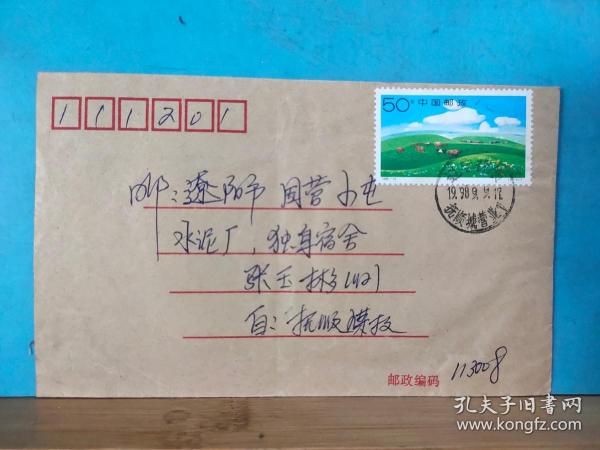 111201
50分 中国邮政
19.98.9.
抚顺
邮：辽阳市 国营小屯
水泥厂，独身宿舍
张玉彬(收)
自：抚顺煤技
邮政编码 113008
孔夫子旧书网
www.kongfz.com